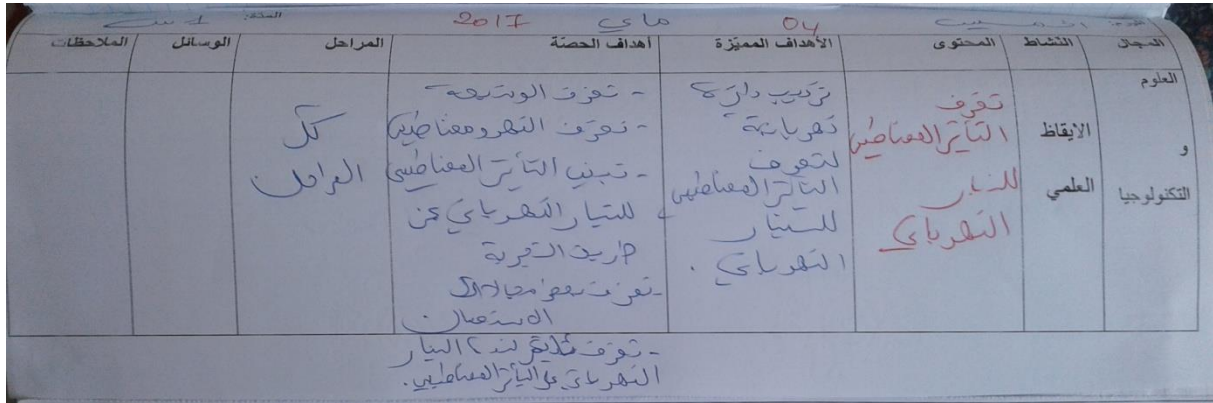 الخميس 04 ماي 2017 المدة:
المجال النشاط المحتوى الأهداف المميّزة أهداف الحصّة المراحل الوسائل الملاحظات
العلوم
و
التكنولوجيا
الايقاظ
العلمي
تعرف
التأثير المغناطيسي
للتيار
الكهربائي
تركيب دارة
كهربائية
لتعرف
التأثير المغناطيسي
للتيار
الكهربائي .
- تعرف الوشيعة
- تعرف الكهرومغناطيس
- تبين التأثير المغناطيسي
للتيار الكهربائي عن
طريق التجربة
- تعرف بعض مجالات
الاستعمال
- تعرف لشدة التيار
الكهربائي على التأثير المغناطيسي.
كل
المراحل